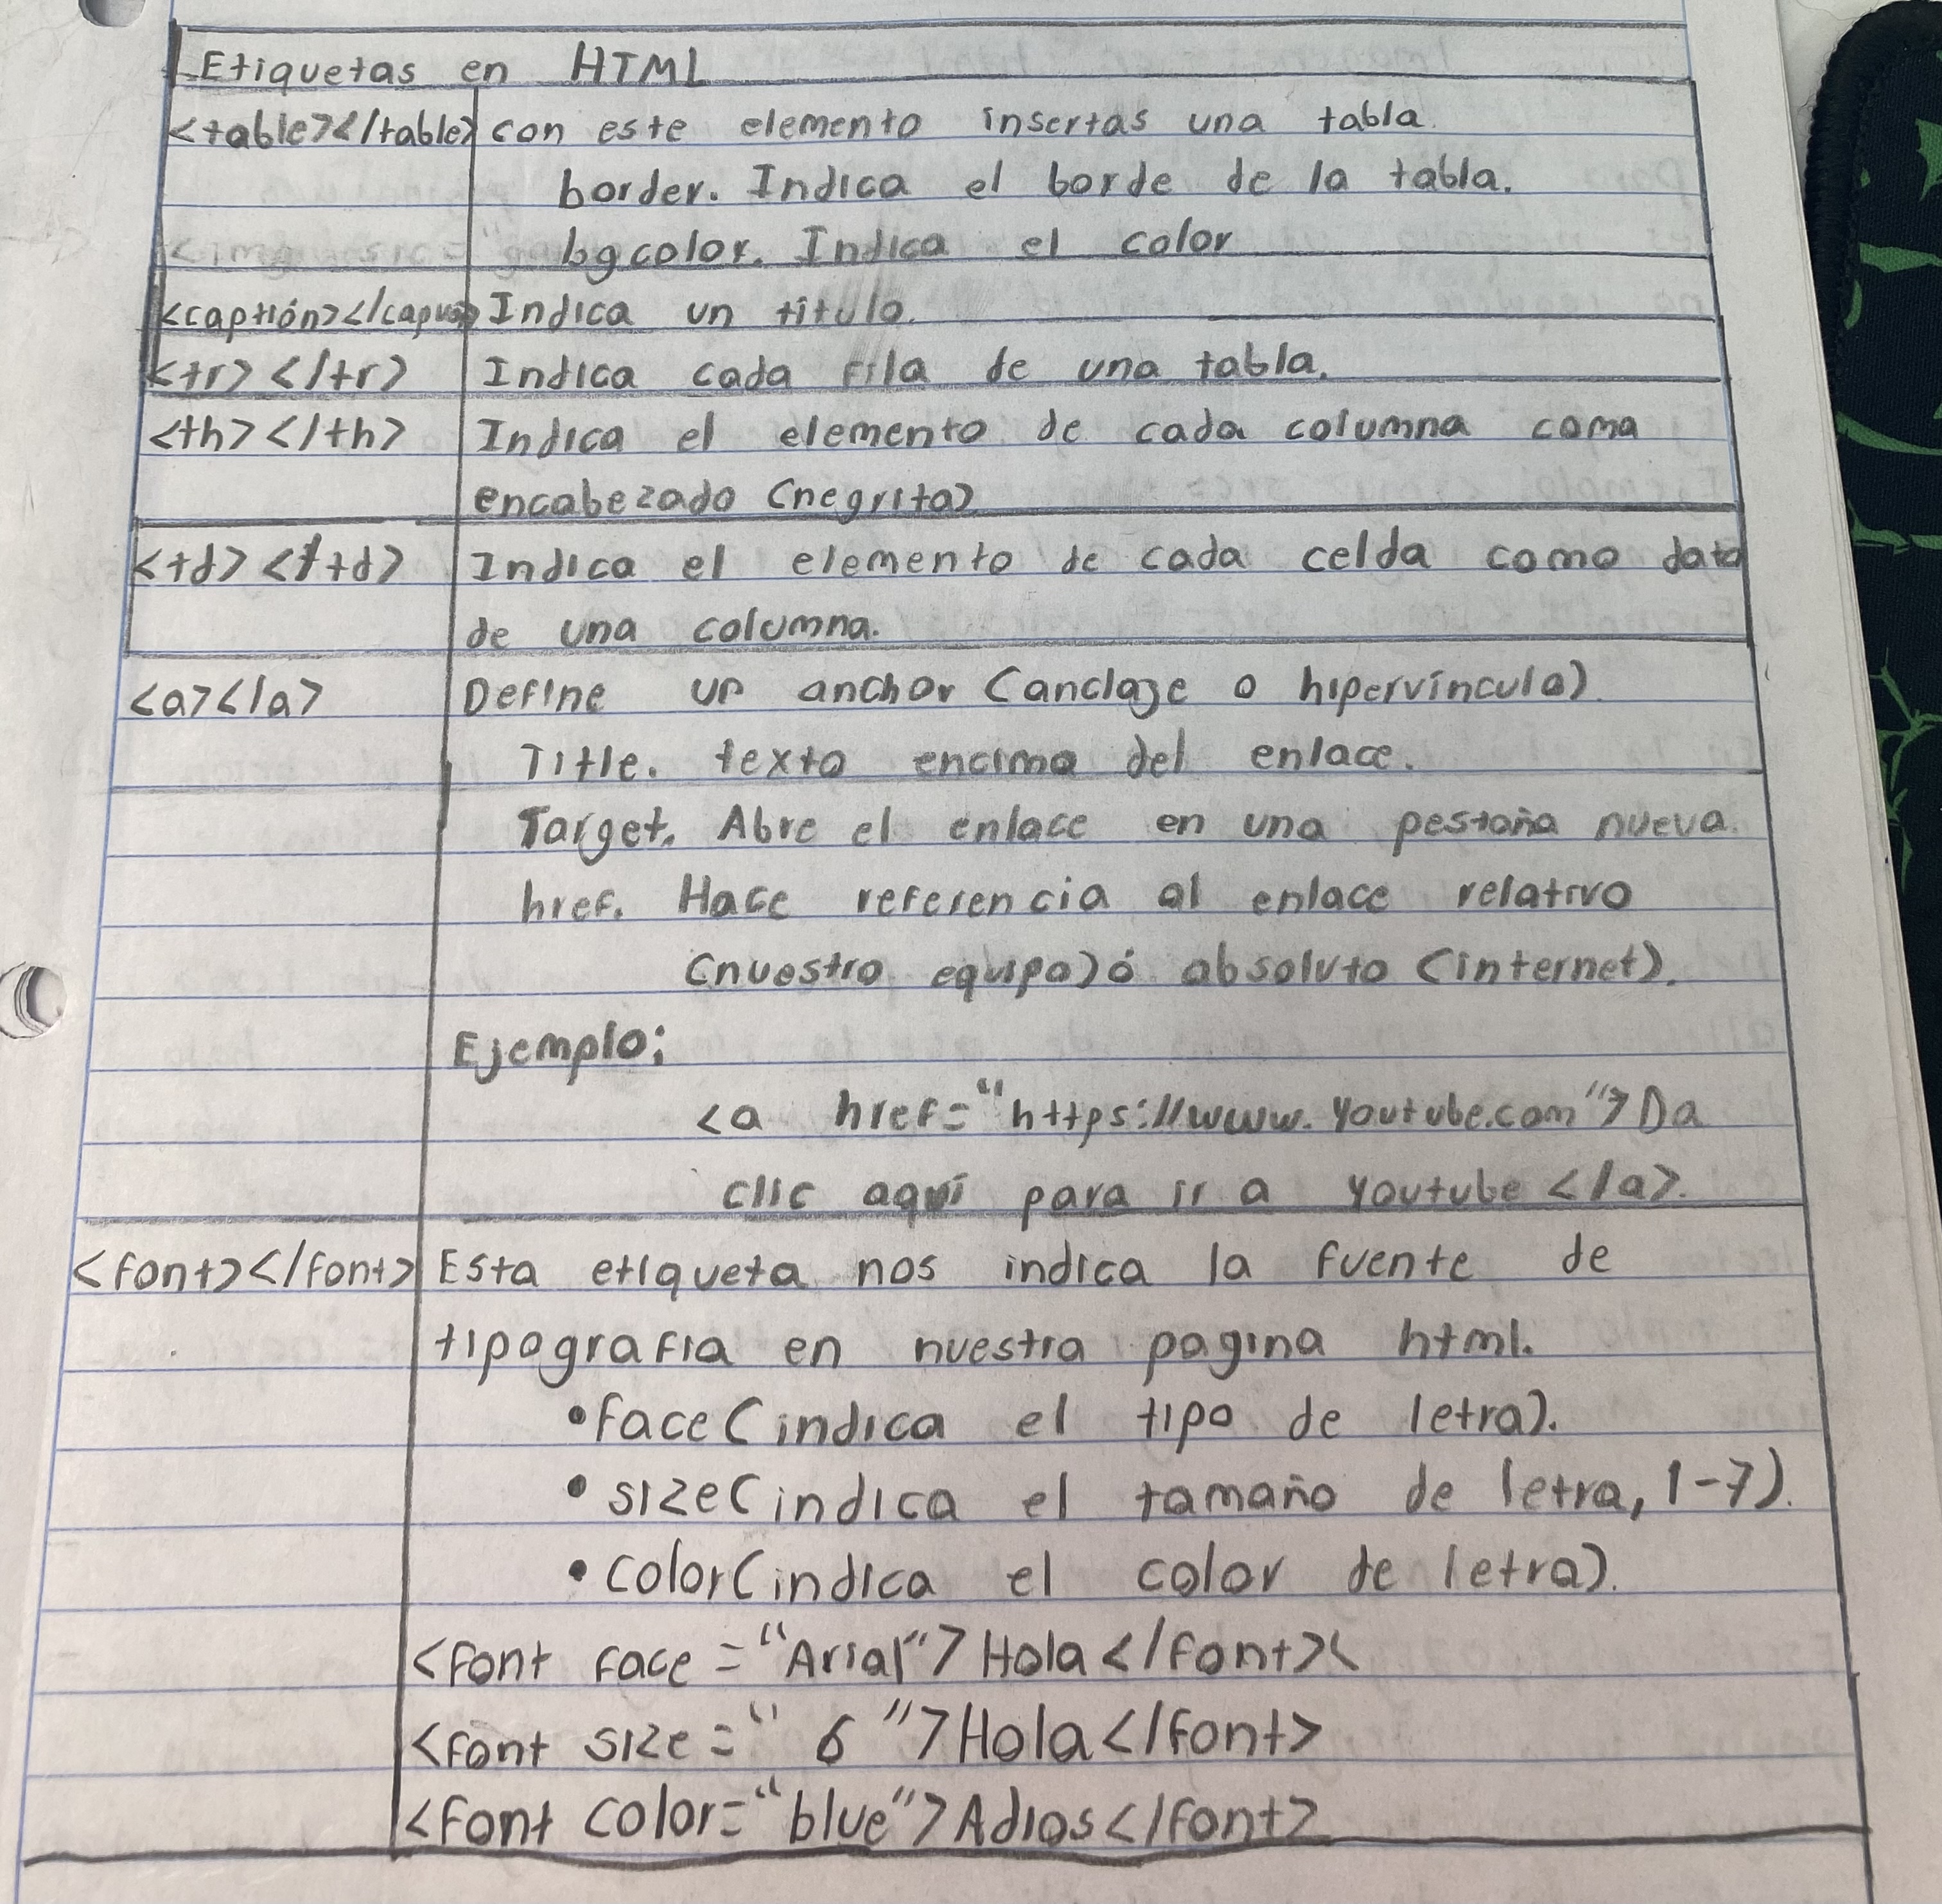 Etiquetas en HTML
<table></table> con este elemento insertas una tabla.
border. Indica el borde de la tabla.
bgcolor. Indica el color
<captión></ Indica un titulo.
<tr></tr> Indica cada fila de una tabla.
<th></th> Indica el elemento de cada columna coma
encabezado (negrita)
<td></td> Indica el elemento de cada celda como dato
de una columna.
<a></a> Define un anchor (anclaje o hipervínculo)
Title. texto encima del enlace.
Target. Abre el enlace en una pestaña nueva.
href. Hace referencia al enlace relativo
(nuestro equipo) ó absoluto (internet).
Ejemplo:
<a href="https://www.youtube.com">Da
clic aquí para ir a youtube </a>.
<font></font> Esta etiqueta nos indica la fuente de
tipografia en nuestra pagina html.
•face (indica el tipo de letra).
•size (indica el tamaño de letra, 1-7).
•color (indica el color de letra).
<font face="Arial">Hola</font><
<font size=" 6 ">Hola</font>
<font color="blue">Adios</font>